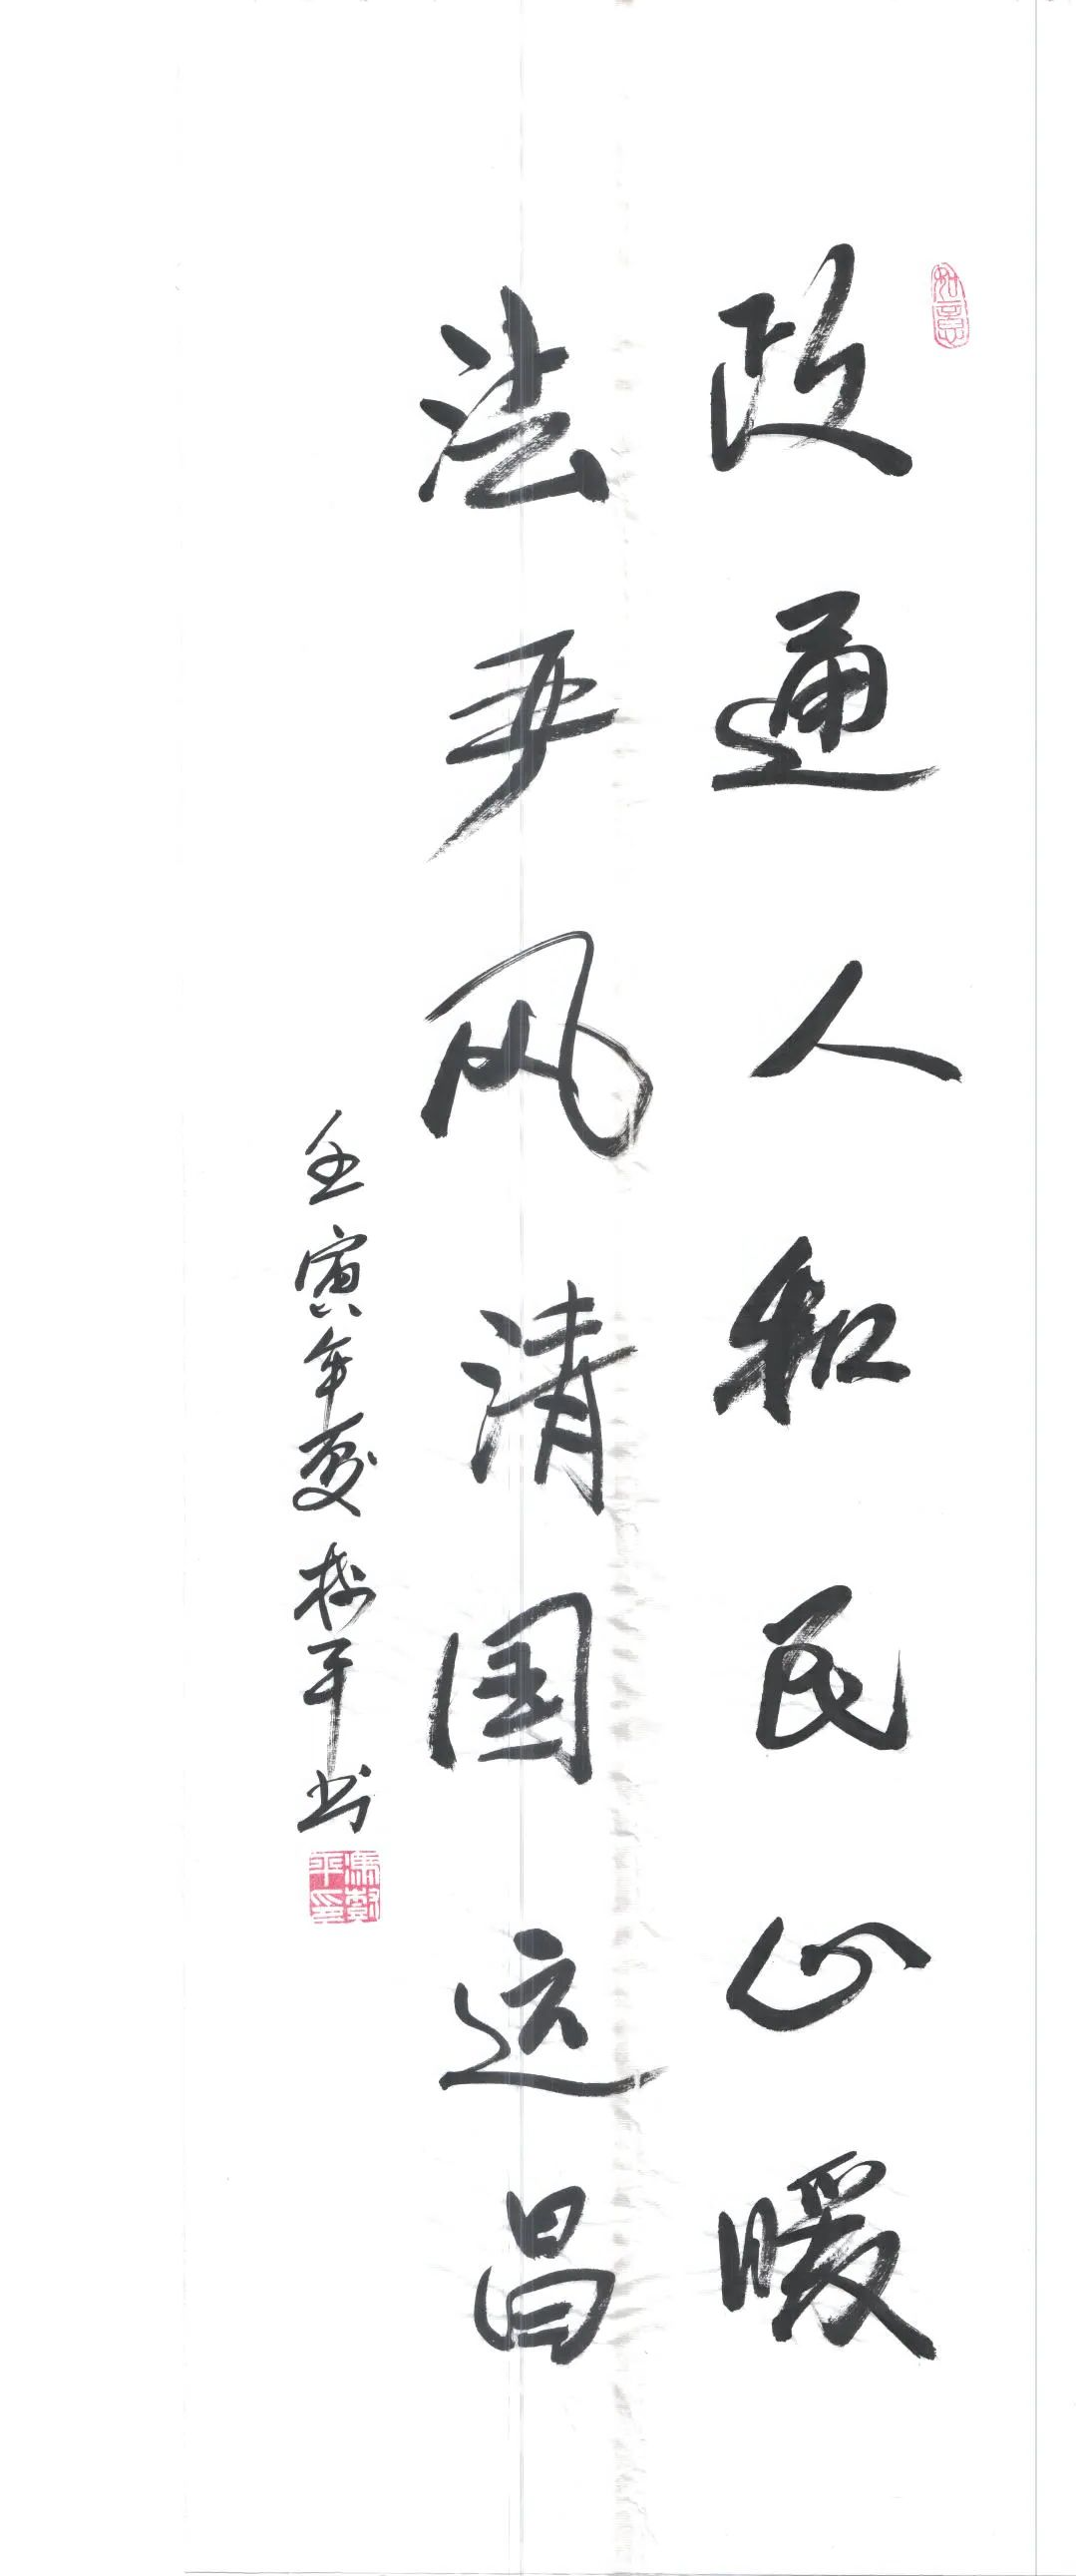 政通人和民心暖
法严风清国运昌
壬寅年夏树平书
如意